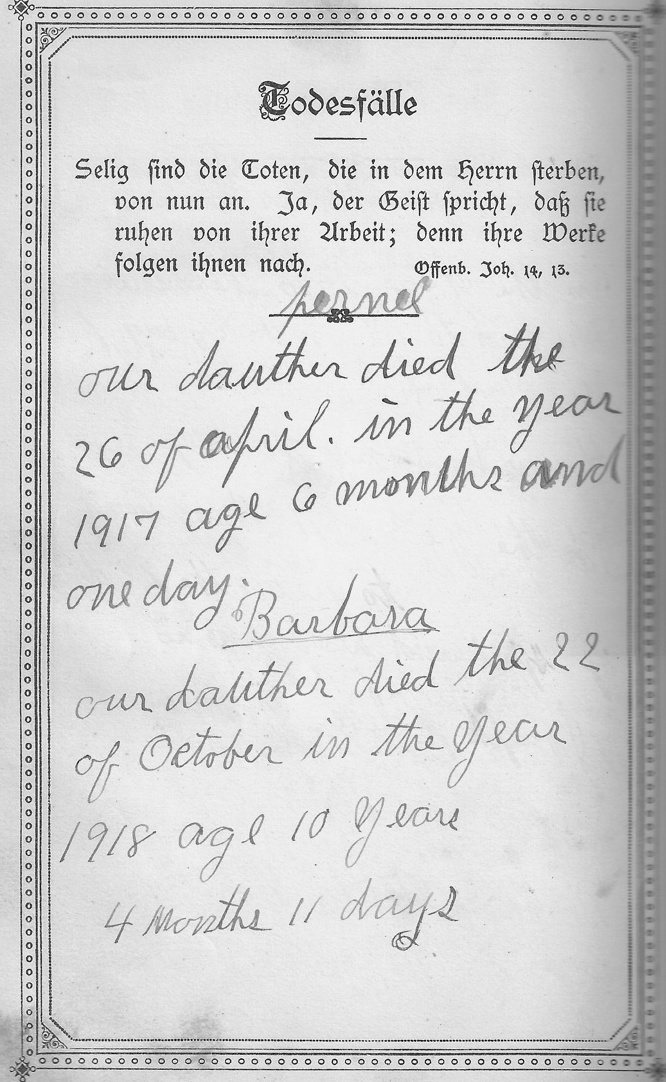 Todesfälle
Selig sind die Toten, die in dem Herrn sterben,
von nun an. Ja, der Geist spricht, daß sie
ruhen von ihrer Arbeit; denn ihre Werke
folgen ihnen nach.
Offenb. Joh. 14, 13.
pernel
our dauther died the
26 of april. in the year
1917 age 6 months and
one day.
Barbara
our dauther died the 22
of October in the Year
1918 age 10 Years
4 Months 11 days